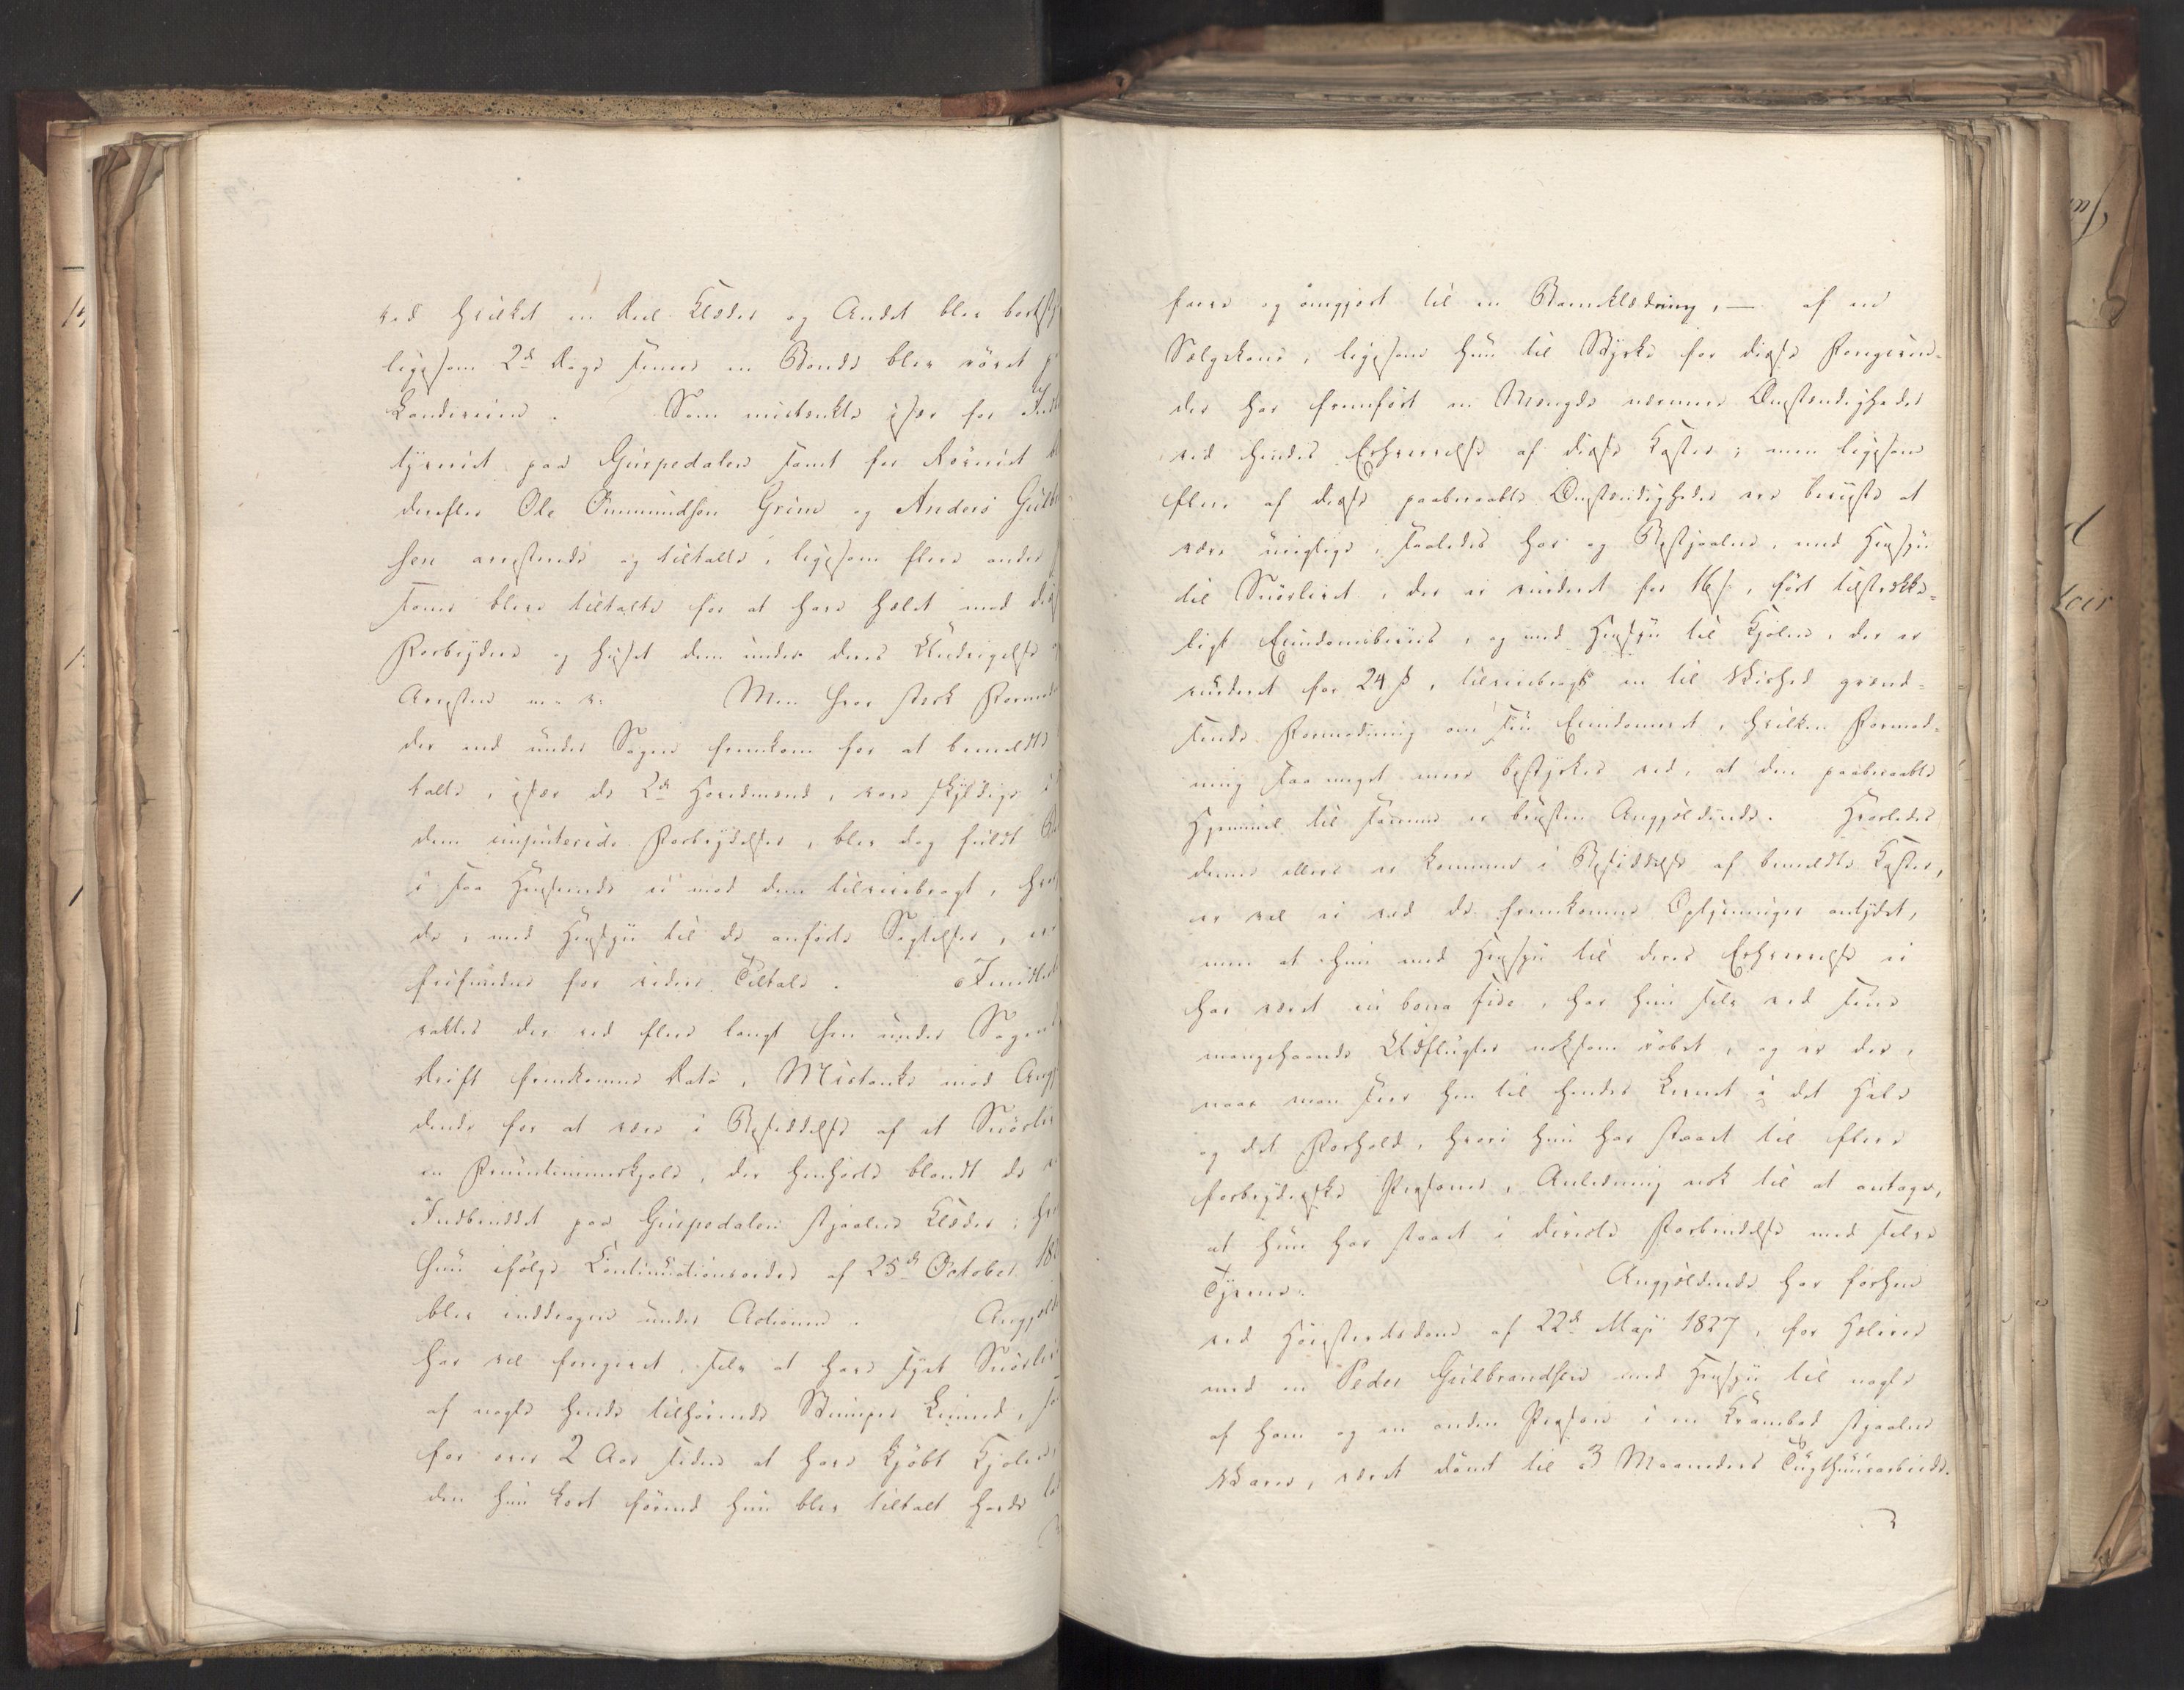 ved hvilket en Deel Klæder og Andet blev bortst
ligesom 2de Dage senere en Bonde blev røvet p
Landeveien. Som mistænkte især for Indb
tyveriet paa Gurpedalen samt for Røveriet bl
derefter Ole Ommundsen Grine og Anders Gulb
sen arresterede og tiltalte, ligesom flere andre P
soner bleve tiltalte for at have hælet med diss
Forbrydere og huset dem under deres Undvigelse a
Arresten m. v. Men hvor stærk Formod
der end under Sagen fremkom for at bemeldte
talte, især de 2de Hovedmænd, vare skyldige i
dem imputerede Forbrydelser, blev dog fuldt Be
i saa Henseende ei mod dem tilveiebragt, hvor
de, med Hensyn til de anførte Sigtelser, ere
frifundne for videre Tiltale. Imidlert
vaktes der ved flere langt hen under Sagens
Drift fremkomne Data, Mistanke mod Angj
dende for at være i Besiddelse af et Snørliv
en Fruentimmerkjole, der henhørte blandt de v
Indbruddet paa Gurpedalen stjaalne Klæder; hv
hun ifølge Continuationsordre af 25de October 18
blev inddragen under Actionen. Angjælde
har vel foregivet, selv at have syet Snørliv
af nogle hende tilhørende Stumper Linned, sa
for over 2 Aar siden at have kjøbt Kjolen,
den hun kort førend hun blev tiltalt havde la
farve og omgjort til en Barneklædning, — af en
Sælgekone, ligesom hun til Styrke for disse Foregivender
der har fremført en Mængde nærmere Omstændigheder
ved hendes Erhvervelse af disse Koster; men ligesom
flere af disse paaberaabte Omstændigheder ere beviiste at
være urigtige, saaledes har og Bestjaalne, med Hensyn
til Snørlivet, der er vurderet for 16 ß, ført tilstrække=
ligt Eiendomsbeviis, og med Hensyn til Kjolen, der er
vurderet for 24 ß, tilveiebragt en til Vished grænd=
sende Formodning om sin Eiendomsret, hvilken Formod=
ning saa meget mere bestyrkes ved, at den paaberaabte
Hjemmel til samme er beviist Angjældende. Hvorledes
denne ellers er kommen i Besiddelse af bemeldte Koster,
er vel ei ved de fremkomne Oplysninger antydet,
men at hun med Hensyn til deres Erhvervelse ei
har været in bona fide, har hun selv ved sine
mangehaande Udflugter noksom røbet, og er der,
naar man seer hen til hendes Levnet i det Hele
og det Forhold, hvori hun har staaet til flere
forbryderske Personer, Anledning nok til at antage,
at hun har staaet i directe Forbindelse med selve
Tyvene. Angjældende har forhen
ved Høiesteretsdom af 22de Maji 1827, for Hæleri
med en Peder Gulbrandsen med Hensyn til nogle
af ham og en anden Person i en Krambod stjaalne
Varer, været dømt til 3 Maaneders Tugthuusarbeide.